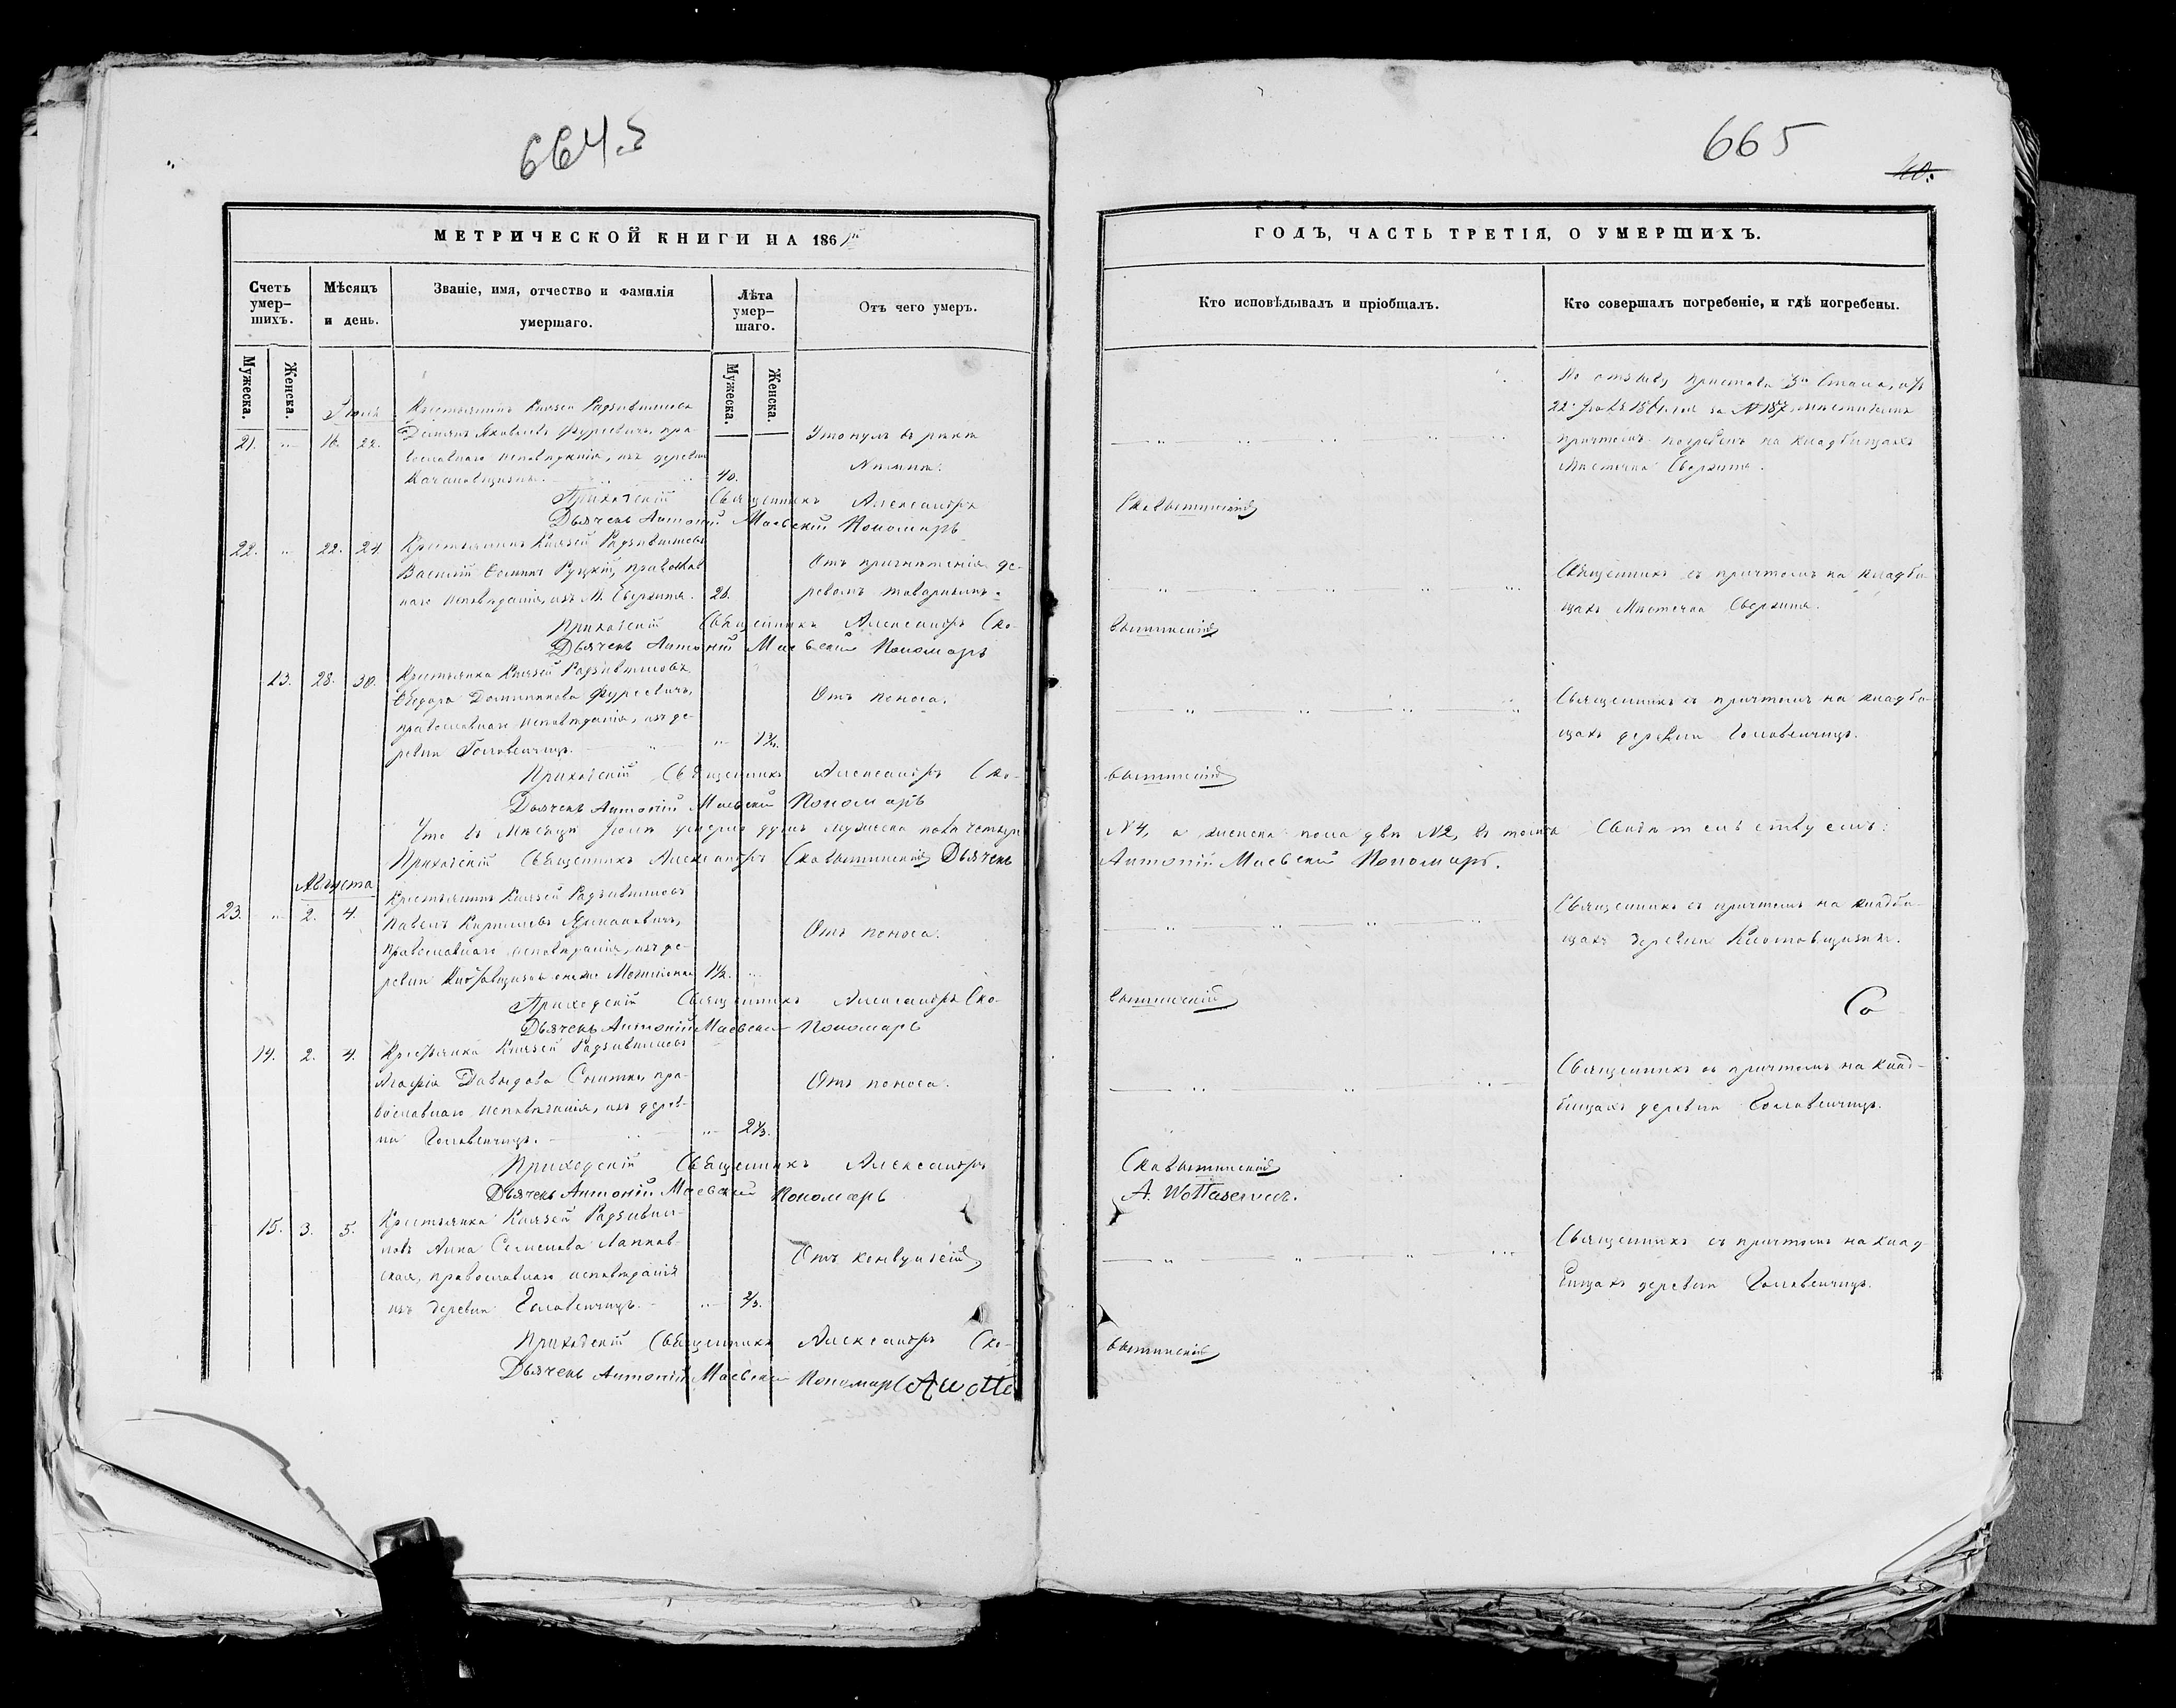 664.
665
40.
МЕТРИЧЕСКОЙ КНИГИ НА 1861й
ГОДЪ, ЧАСТЬ ТРЕТІЯ, О УМЕРШИХЪ.
Счетъ умер-
шихъ.
Мѣсяцъ
и день.
Званіе, имя, отчество и фамилія
умершаго.
Лѣта
умер-
шаго.
Отъ чего умеръ.
Кто исповѣдывалъ и пріобщалъ.
Кто совершалъ погребеніе, и гдѣ погребены.
Мужеска.
Женска.
Мужеска.
Женска.
Іюля
21. 16. 22.
Крестьянинъ Князей Радзивиловъ
Демьянъ Яковлевъ Фурсевичъ, пра-
вославнаго исповѣданія, изъ деревни
40.
Утонулъ въ рѣкѣ
Нѣманѣ.
Пристава 3го Стана, отъ
22 Іюля 1861 года за № 187,
причтомъ погребенъ на кладбищахъ
Мѣстечка Свержня.
Приходскій Священникъ Александръ
Сковытинскій
Дьячекъ Антоній Маевскій Пономарь
22. 22. 24.
Крестьянинъ Князей Радзивиловъ
Василій Руцкій, православ-
наго исповѣданія, изъ М. Свержня. 28.
Отъ де-
ревомъ товарнымъ.
Священникъ съ причтомъ на кладби-
щахъ Мѣстечка Свержня.
Приходскій Священникъ Александръ Ско-
вытинскій
Дьячекъ Антоній Маевскій Пономарь
13. 28. 30.
Крестьянка Князей Радзивиловъ
Ѳедора Доминикова Фурсевичъ,
православнаго исповѣданія, изъ де-
ревни Головенчицъ.
Отъ поноса.
Священникъ съ причтомъ на кладби-
щахъ деревни Головенчицъ.
Приходскій Священникъ Александръ Ско-
вытинскій
Дьячекъ Антоній Маевскій Пономарь
Что въ Мѣсяцѣ Іюлѣ умерло душъ мужеска пола четыре
№ 4, а женска пола двѣ № 2, въ томъ Свидѣтельствуемъ:
Приходскій Священникъ Александръ Сковытинскій Дьячекъ
Антоній Маевскій Пономарь.
Августа
23. 2. 4.
Крестьянинъ Князей Радзивиловъ
Павелъ Кирилловъ
православнаго исповѣданія, изъ де-
ревни 1½.
Отъ поноса.
Священникъ съ причтомъ на кладби-
щахъ деревни
Приходскій Священникъ Александръ Ско-
вытинскій
Дьячекъ Антоній Маевскій Пономарь
14. 2. 4.
Крестьянка Князей Радзивиловъ
Агафія Давыдова Снитко, пра-
вославнаго исповѣданія, изъ дерев-
ни Головенчицъ. 2⅓.
Отъ поноса.
Священникъ съ причтомъ на клад-
бищахъ деревни Головенчицъ.
Приходскій Священникъ Александръ
Сковытинскій
Дьячекъ Антоній Маевскій Пономарь
15. 3. 5.
Крестьянка Князей Радзиви-
ловъ Анна Семенова Лапков-
ская, православнаго исповѣданія
изъ деревни Головенчицъ. ⅔.
Отъ конвульсій
Священникъ съ причтомъ на клад-
бищахъ деревни Головенчицъ.
Приходскій Священникъ Александръ Ско-
вытинскій
Дьячекъ Антоній Маевскій Пономарь